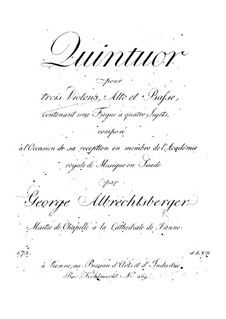 Quintuor
pour
trois Violons, Alto et Basse,
contenant une Fugue à quatre Sujets,
composé
à l'Occasion de sa reception en membre de l'Académie
royale de Musique en Suede
par
George Albrechtsberger
Maitre de Chapelle à la Cathedrale de Vienne
à Vienne, au Bureau d'Arts et d'Industrie
Rue Kohlmarkt No. 269.